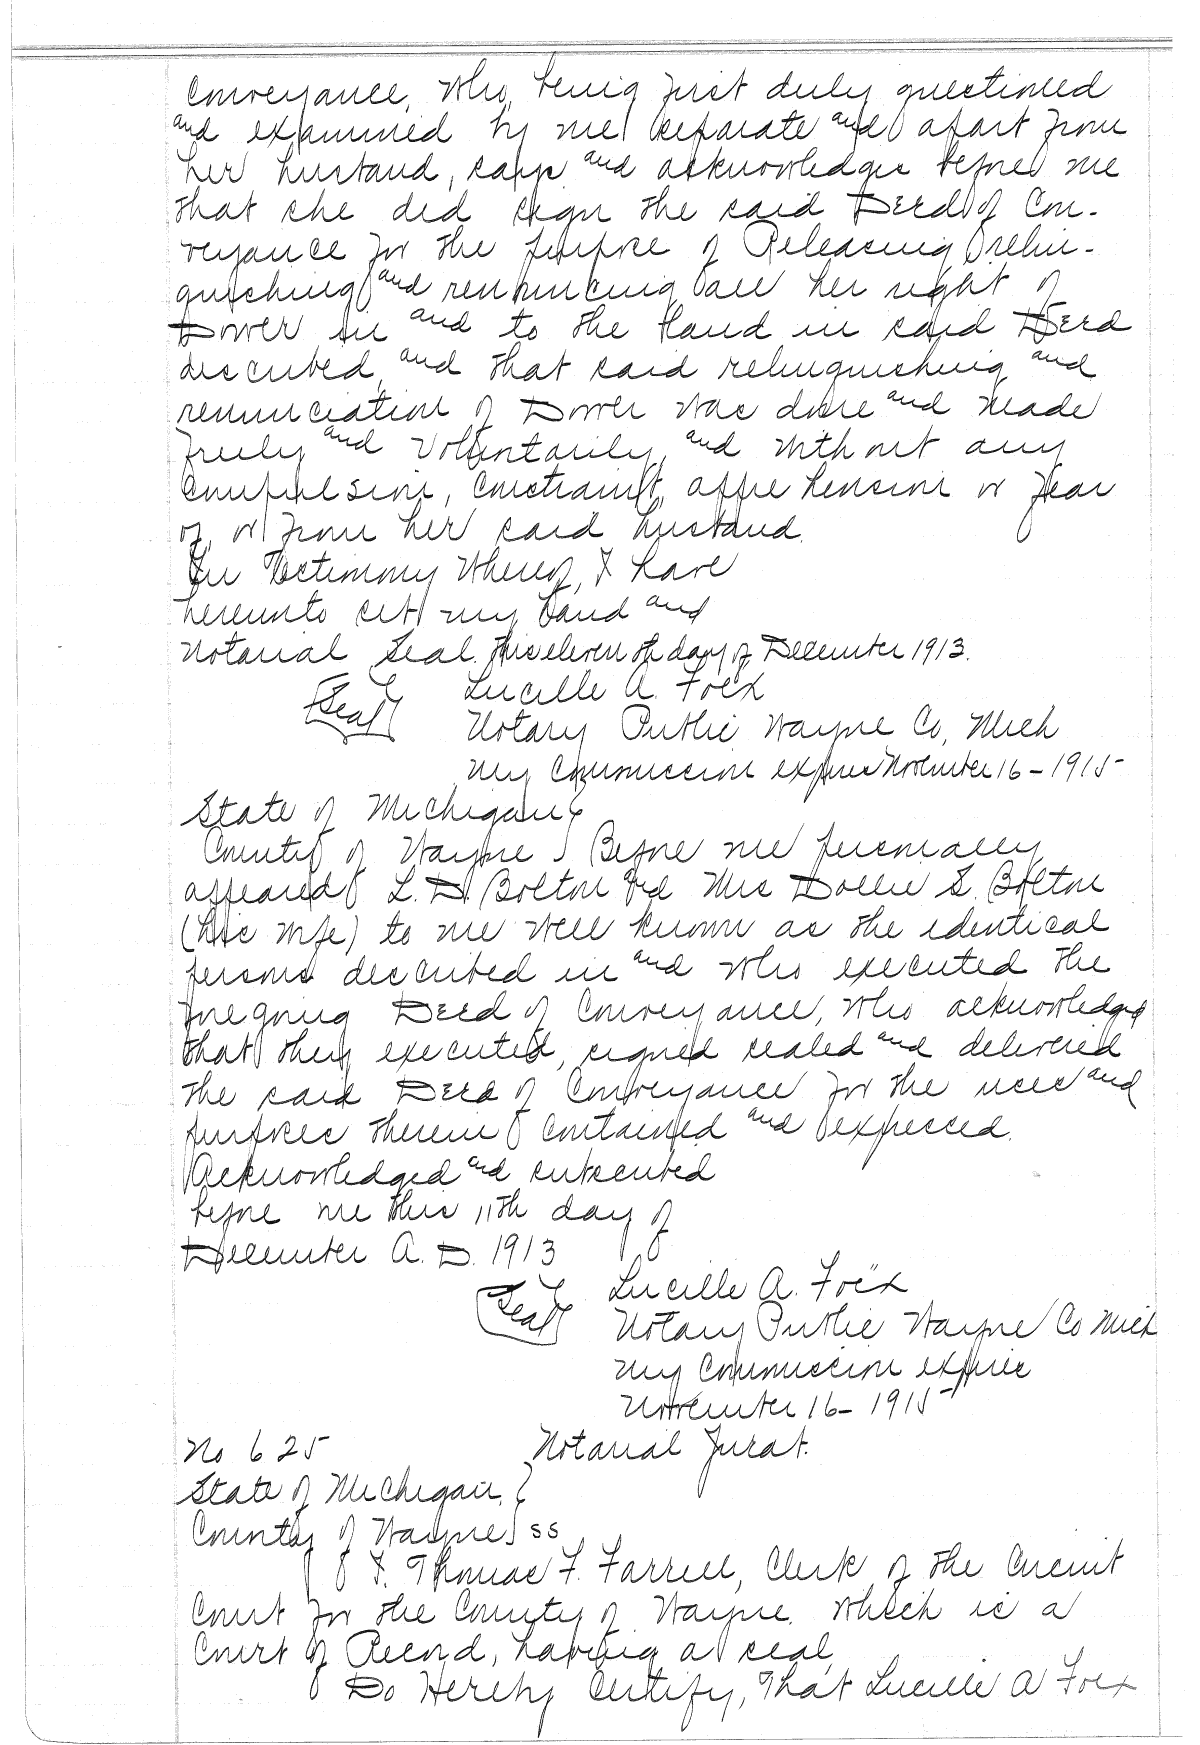 Conveyance, who, being first duly questioned
and examined by me separate and apart from
her husband, says and acknowledges before me
that she did sign the said Deed of Con-
veyance for the purpose of Releasing, relin-
quishing and renouncing all her right of
Dower in and to the land in said Deed
described, and that said relinquishing and
renunciation of Dower was done and made
freely and voluntarily, and without any
compulsion, constraint, apprehension or fear
of, or from her said husband.
In Testimony Whereof, I have
hereunto set my hand and
Notarial Seal this eleventh day of December 1913.
(Seal) Lucille A. Foëx
Notary Public Wayne Co, Mich
My Commission expires November 16 - 1915
State of Michigan }
County of Wayne } Before me personally
appeared L. D. Bolton and Mrs Dollie S. Bolton
(his wife) to me well known as the identical
persons described in and who executed the
foregoing Deed of Conveyance, who acknowledged
that they executed, signed sealed and delivered
the said Deed of Conveyance for the uses and
purposes therein contained and expressed.
Acknowledged and subscribed
before me this 11th day of
December A. D. 1913
(Seal) Lucille A. Foëx
Notary Public Wayne Co Mich
My Commission expires
November 16 - 1915
No 625 Notarial Jurat.
State of Michigan, }
County of Wayne } ss
I, Thomas F. Farrell, Clerk of the Circuit
Court for the County of Wayne, which is a
Court of Record, having a seal,
Do Hereby Certify, That Lucille A Foex